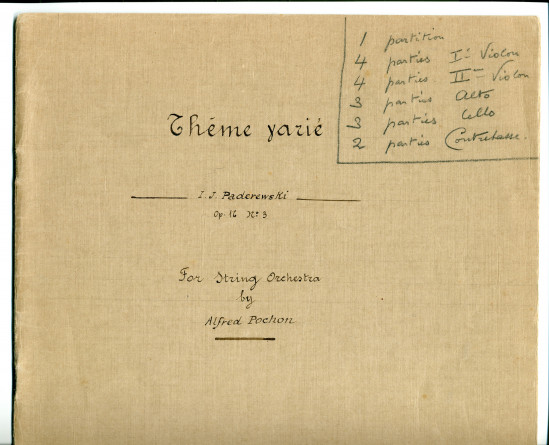 1 partition
4 parties Ier Violon
4 parties IIme Violon
3 parties Alto
3 parties Cello
2 parties Contrebasse.
Théme varié
I. J. Paderewski
Op. 16 No. 3
For String Orchestra
by
Alfred Pochon